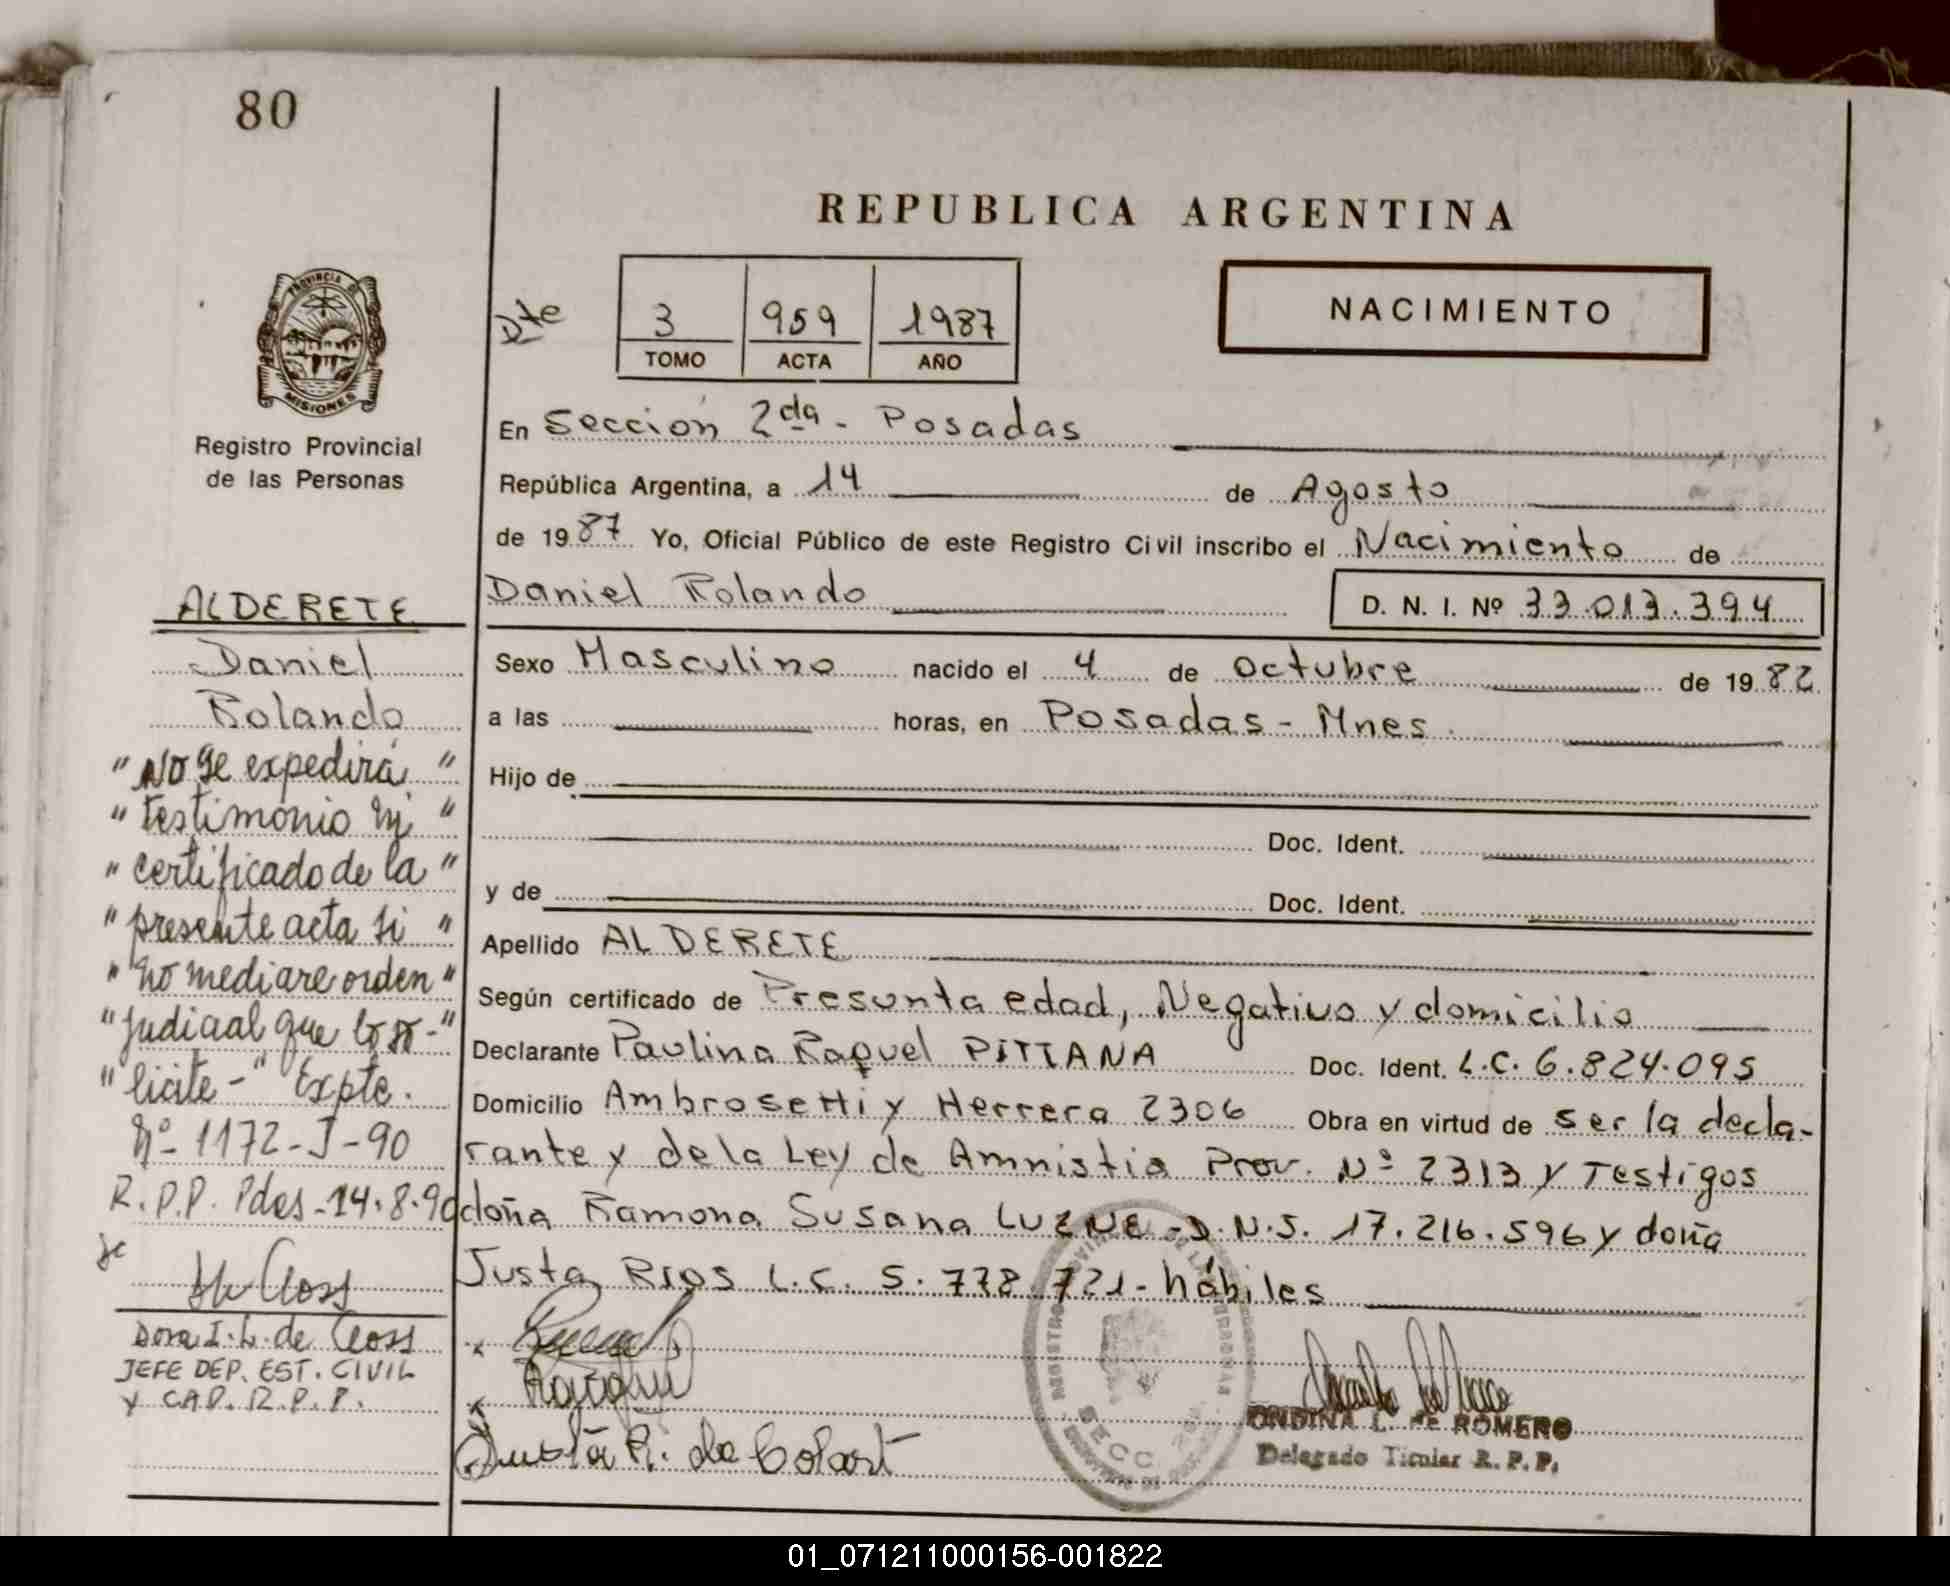 80
REPUBLICA ARGENTINA
PROVINCIA DE
MISIONES
Registro Provincial
de las Personas
Dte
3 959 1987
TOMO ACTA AÑO
NACIMIENTO
En Sección 2da - Posadas
República Argentina, a 14 de Agosto
de 1987 Yo, Oficial Público de este Registro Civil inscribo el Nacimiento de
Daniel Rolando D. N. I. Nº 33.013.394
Sexo Masculino nacido el 4 de octubre de 1982
a las horas, en Posadas - Mnes.
Hijo de
Doc. Ident.
y de Doc. Ident.
Apellido ALDERETE
Según certificado de Presunta edad, Negativo y domicilio
Declarante Paulina Raquel PITTANA Doc. Ident. L.C. 6.824.095
Domicilio Ambrosetti y Herrera 2306 Obra en virtud de ser la decla-
rante y de la Ley de Amnistia Prov. Nº 2313 y Testigos
doña Ramona Susana D.N.I. 17.216.596 y doña
Justa Rios L.C. 5.778.721 - hábiles
Justa R. de
ONDINA L. DE ROMERO
Delegado Titular R. P. P.
SECC.
ALDERETE
Daniel
Rolando
"No se expedirá"
"testimonio ni"
"certificado de la"
"presente acta si"
"no mediare orden"
"judicial que lo so-"
"licite-" Expte.
Nº 1172-J-90
R.P.P. Pdas-14.8.90
Dora I. L. de Closs
JEFE DEP. EST. CIVIL
Y CAP. R. P. P.
01_071211000156-001822